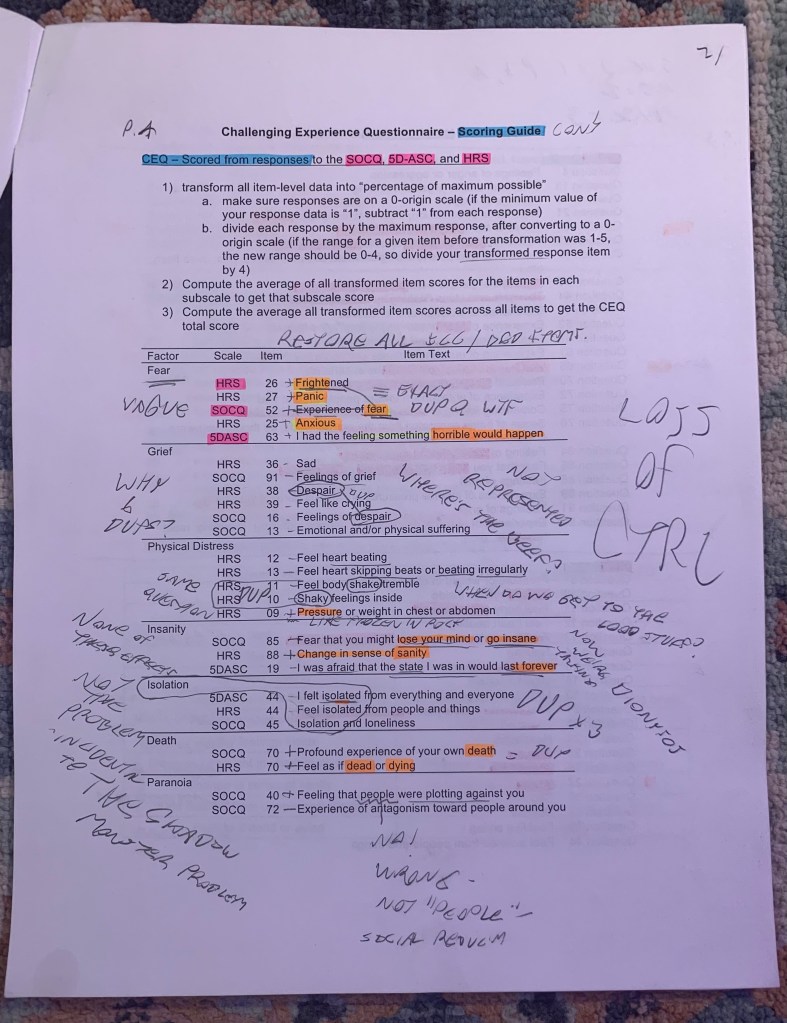 21
P.4 Challenging Experience Questionnaire – Scoring Guide CONT
CEQ – Scored from responses to the SOCQ, 5D-ASC, and HRS
1) transform all item-level data into "percentage of maximum possible"
a. make sure responses are on a 0-origin scale (if the minimum value of
your response data is "1", subtract "1" from each response)
b. divide each response by the maximum response, after converting to a 0-
origin scale (if the range for a given item before transformation was 1-5,
the new range should be 0-4, so divide your transformed response item
by 4)
2) Compute the average of all transformed item scores for the items in each
subscale to get that subscale score
3) Compute the average all transformed item scores across all items to get the CEQ
total score
RESTORE ALL ITEMS.
Factor Scale Item Item Text
Fear
HRS 26 + Frightened
HRS 27 + Panic
SOCQ 52 + Experience of fear
HRS 25 + Anxious
5DASC 63 + I had the feeling something horrible would happen
VAGUE
≡ EXACT
DUP Q WTF
LOSS
OF
CTRL
Grief
HRS 36 - Sad
SOCQ 91 – Feelings of grief
HRS 38 – Despair DUP
HRS 39 – Feel like crying
SOCQ 16 - Feelings of despair
SOCQ 13 - Emotional and/or physical suffering
WHY
6
DUPS?
NOT
REPRESENTED
WHERE'S THE
Physical Distress
HRS 12 – Feel heart beating
HRS 13 – Feel heart skipping beats or beating irregularly
HRS 11 – Feel body shake/tremble
HRS 10 – Shaky feelings inside
HRS 09 + Pressure or weight in chest or abdomen
SAME
QUESTION
DUP
WHEN DO WE GET TO THE
GOOD STUFF?
LIKE FROZEN IN
Insanity
SOCQ 85 – Fear that you might lose your mind or go insane
HRS 88 + Change in sense of sanity
5DASC 19 – I was afraid that the state I was in would last forever
NONE OF
THESE EFFECTS
NOW
WE'RE
TALKING
DIONYSOS
Isolation
5DASC 44 – I felt isolated from everything and everyone
HRS 44 – Feel isolated from people and things
SOCQ 45 Isolation and loneliness
DUP x 3
Death
SOCQ 70 + Profound experience of your own death = DUP
HRS 70 + Feel as if dead or dying
NOT
THE
PROBLEM
INCIDENTAL
TO
THE SHADOW
MONSTER PROBLEM
Paranoia
SOCQ 40 + Feeling that people were plotting against you
SOCQ 72 — Experience of antagonism toward people around you
NO!
WRONG -
NOT "PEOPLE" –
SOCIAL